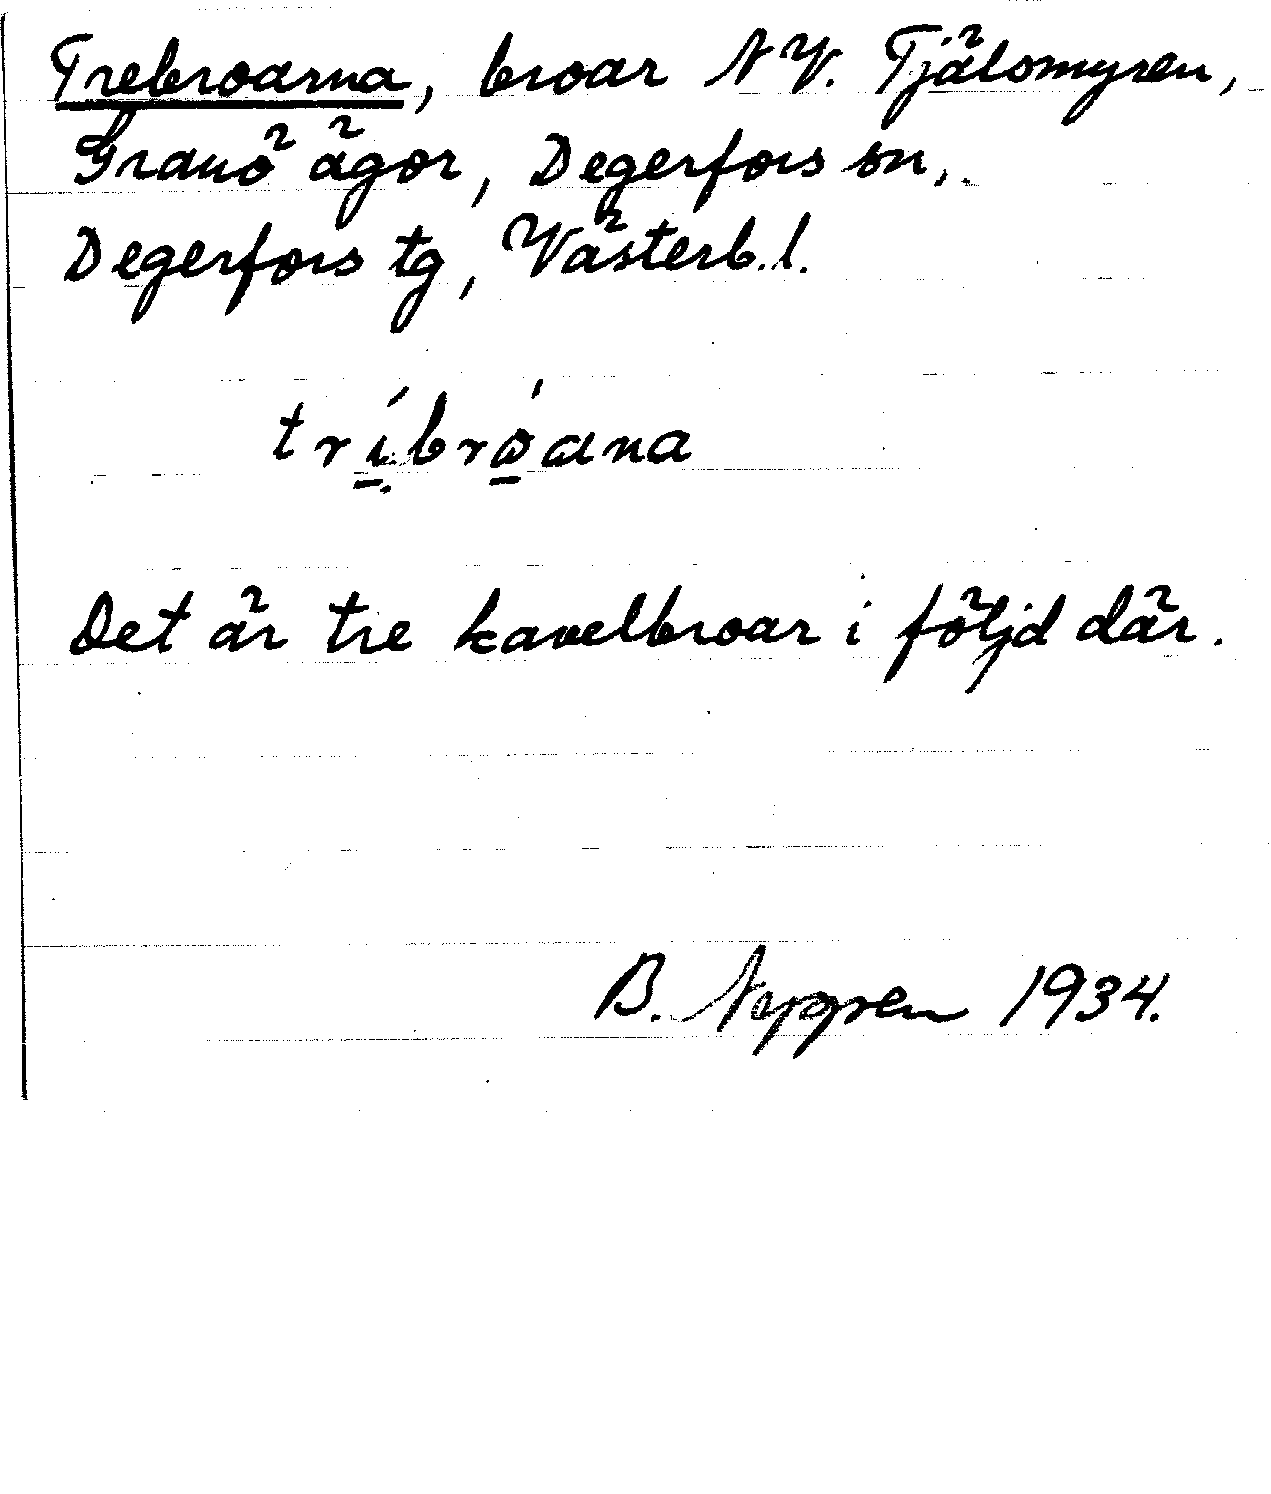 Trebroarna, broar N V. Tjälsmyren,
Granö ägor, Degerfors sn,
Degerfors tg, Västerb. l.
tríbróana
Det är tre kavelbroar i följd där.
B. Nygren 1934.